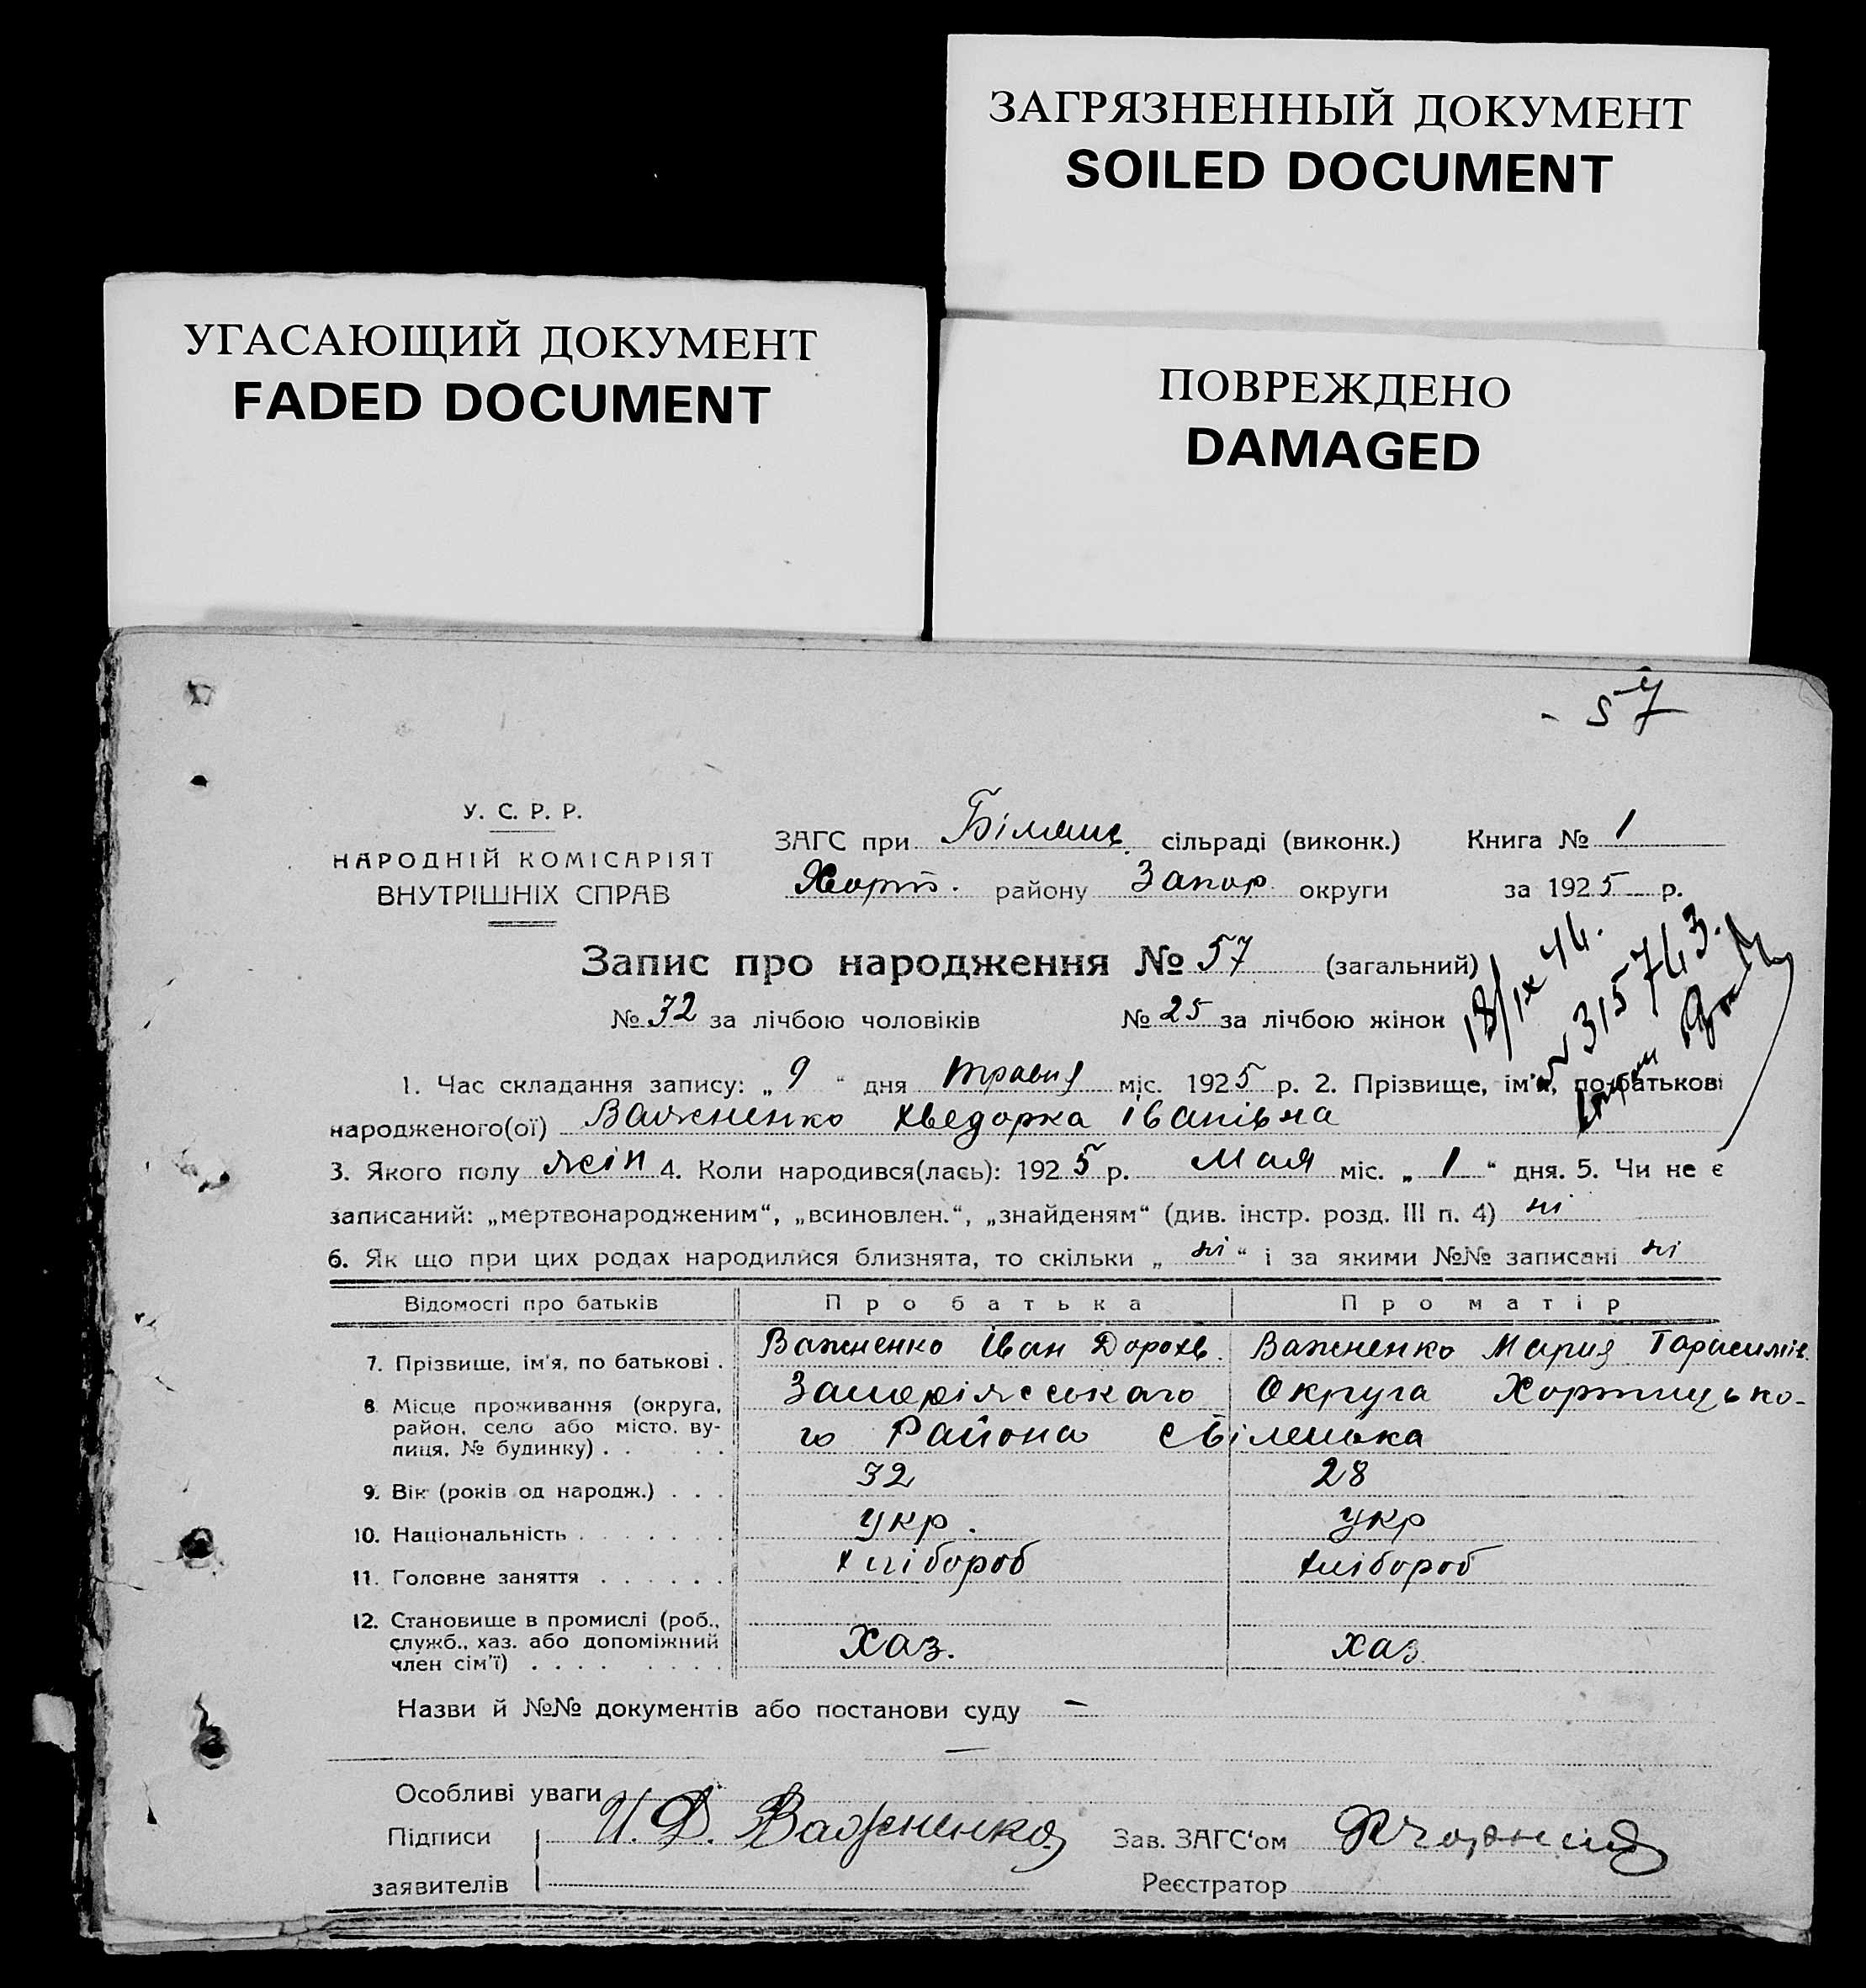 ЗАГРЯЗНЕННЫЙ ДОКУМЕНТ
SOILED DOCUMENT
УГАСАЮЩИЙ ДОКУМЕНТ
FADED DOCUMENT
ПОВРЕЖДЕНО
DAMAGED
- 57
У. С. Р. Р.
НАРОДНІЙ КОМІСАРІЯТ
ВНУТРІШНІХ СПРАВ
ЗАГС при Біленьк. сільраді (виконк.) Книга № 1
Хорт. району Запор. округи за 1925 р.
Запис про народження № 57 (загальний)
№ 32 за лічбою чоловіків № 25 за лічбою жінок
18/IX 44.
№ 315743.
1. Час складання запису: „ 9 “ дня травня міс. 1925 р. 2. Прізвище, ім'я, по-батькові
народженого(ої) Важненко Хведорка Іванівна
3. Якого полу жін 4. Коли народився(лась): 1925 р. мая міс. „ 1 “ дня. 5. Чи не є
записаний: „мертвонародженим“, „всиновлен.“, „знайденям“ (див. інстр. розд. III п. 4) ні
6. Як що при цих родах народилися близнята, то скільки „ ні “ і за якими №№ записані ні
Відомості про батьків Про батька Про матір
7. Прізвище, ім'я, по батькові . Важненко Іван Дорохв. Важненко Мария Тарасимів.
8. Місце проживання (округа, Запоріжського Округа Хортицько-
район, село або місто, ву- го Района с Біленька
лиця, № будинку) . . . .
9. Вік (років од народж.) . . . 32 28
10. Національність . . . . . . укр. укр
11. Головне заняття . . . . . . хлібороб хлібороб
12. Становище в промислі (роб.,
служб., хаз. або допоміжний Хаз. хаз
член сім'ї) . . . . . . . .
Назви й №№ документів або постанови суду —
—
Особливі уваги
Підписи И. Д. Важненко Зав. ЗАГС'ом
заявителів Реєстратор